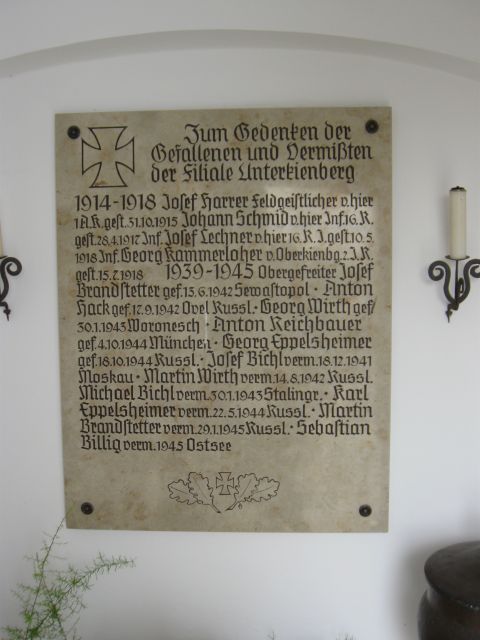 Zum Gedenken der
Gefallenen und Vermißten
der Filiale Unterkienberg
1914-1918 Josef Harrer Feldgeistlicher v. hier
1.A.K. gest. 31.10.1915 Johann Schmid v. hier Inf. 16. R.
gest. 28.4.1917 Inf. Josef Lechner v. hier 16. R. I. gest. 10.5.
1918 Inf. Georg Kammerloher v. Oberkienbg. 2. I. R.
gest. 15.7.1918 1939-1945 Obergefreiter Josef
Brandstetter gef. 15.6.1942 Sewastopol · Anton
Hack gef. 17.9.1942 Orel Russl. · Georg Wirth gef.
30.1.1943 Woronesch · Anton Reichbauer
gef. 4.10.1944 München · Georg Eppelsheimer
gef. 18.10.1944 Russl. · Josef Bichl verm. 18.12.1941
Moskau · Martin Wirth verm. 14.8.1942 Russl.
Michael Bichl verm. 30.1.1943 Stalingr. · Karl
Eppelsheimer verm. 22.5.1944 Russl. · Martin
Brandstetter verm. 29.1.1945 Russl. · Sebastian
Billig verm. 1945 Ostsee